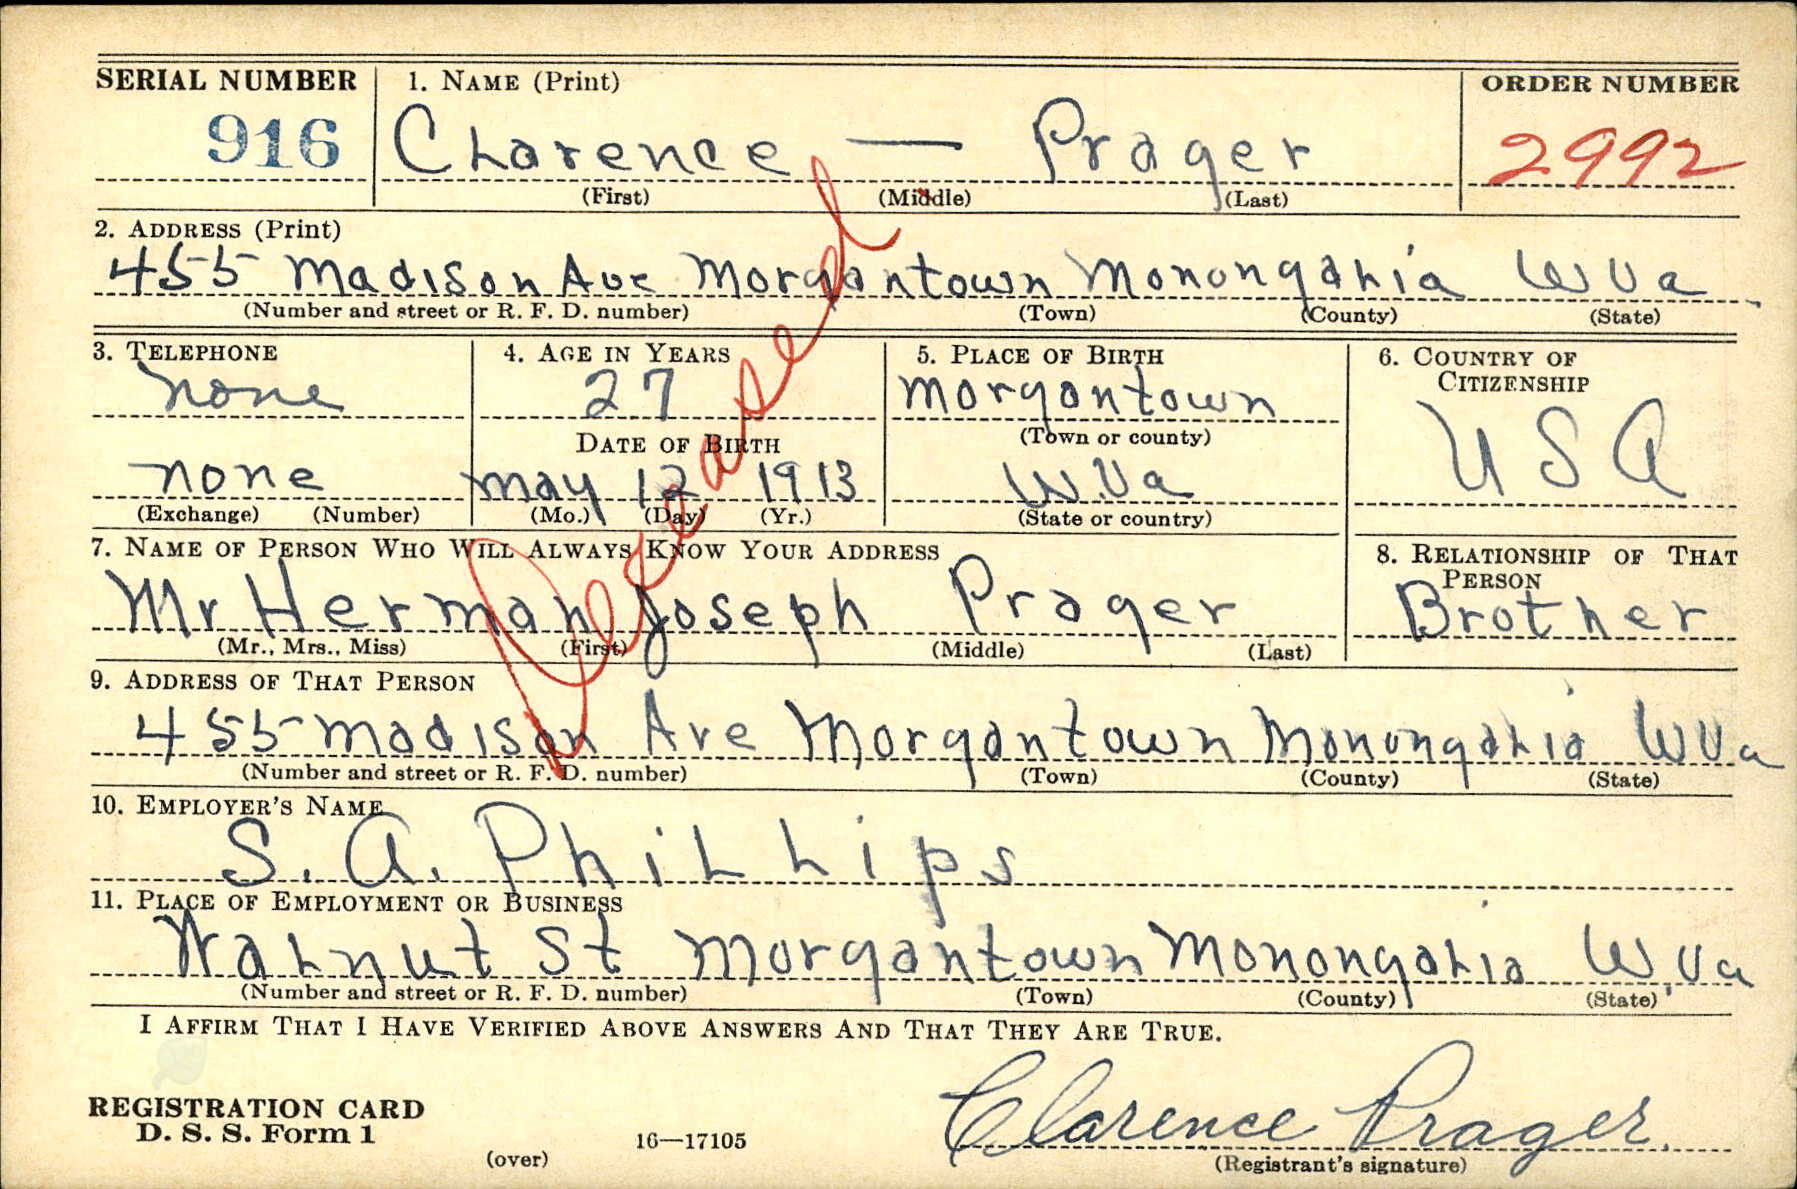 SERIAL NUMBER 1. NAME (Print) ORDER NUMBER
916 Clarence — Prager 2992
(First) (Middle) (Last)
2. ADDRESS (Print)
455 Madison Ave Morgantown Monongalia W Va
(Number and street or R. F. D. number) (Town) (County) (State)
3. TELEPHONE 4. AGE IN YEARS 5. PLACE OF BIRTH 6. COUNTRY OF
CITIZENSHIP
none 27 Morgantown U S A
DATE OF BIRTH (Town or county)
none May 12 1913 W.Va
(Exchange) (Number) (Mo.) (Day) (Yr.) (State or country)
Deceased
7. NAME OF PERSON WHO WILL ALWAYS KNOW YOUR ADDRESS 8. RELATIONSHIP OF THAT
PERSON
Mr Herman Joseph Prager Brother
(Mr., Mrs., Miss) (First) (Middle) (Last)
9. ADDRESS OF THAT PERSON
455 Madison Ave Morgantown Monongalia W Va
(Number and street or R. F. D. number) (Town) (County) (State)
10. EMPLOYER'S NAME
S. A. Phillips
11. PLACE OF EMPLOYMENT OR BUSINESS
Walnut St Morgantown Monongalia W.Va
(Number and street or R. F. D. number) (Town) (County) (State)
I AFFIRM THAT I HAVE VERIFIED ABOVE ANSWERS AND THAT THEY ARE TRUE.
REGISTRATION CARD
D. S. S. Form 1 16—17105 Clarence Prager.
(over) (Registrant's signature)